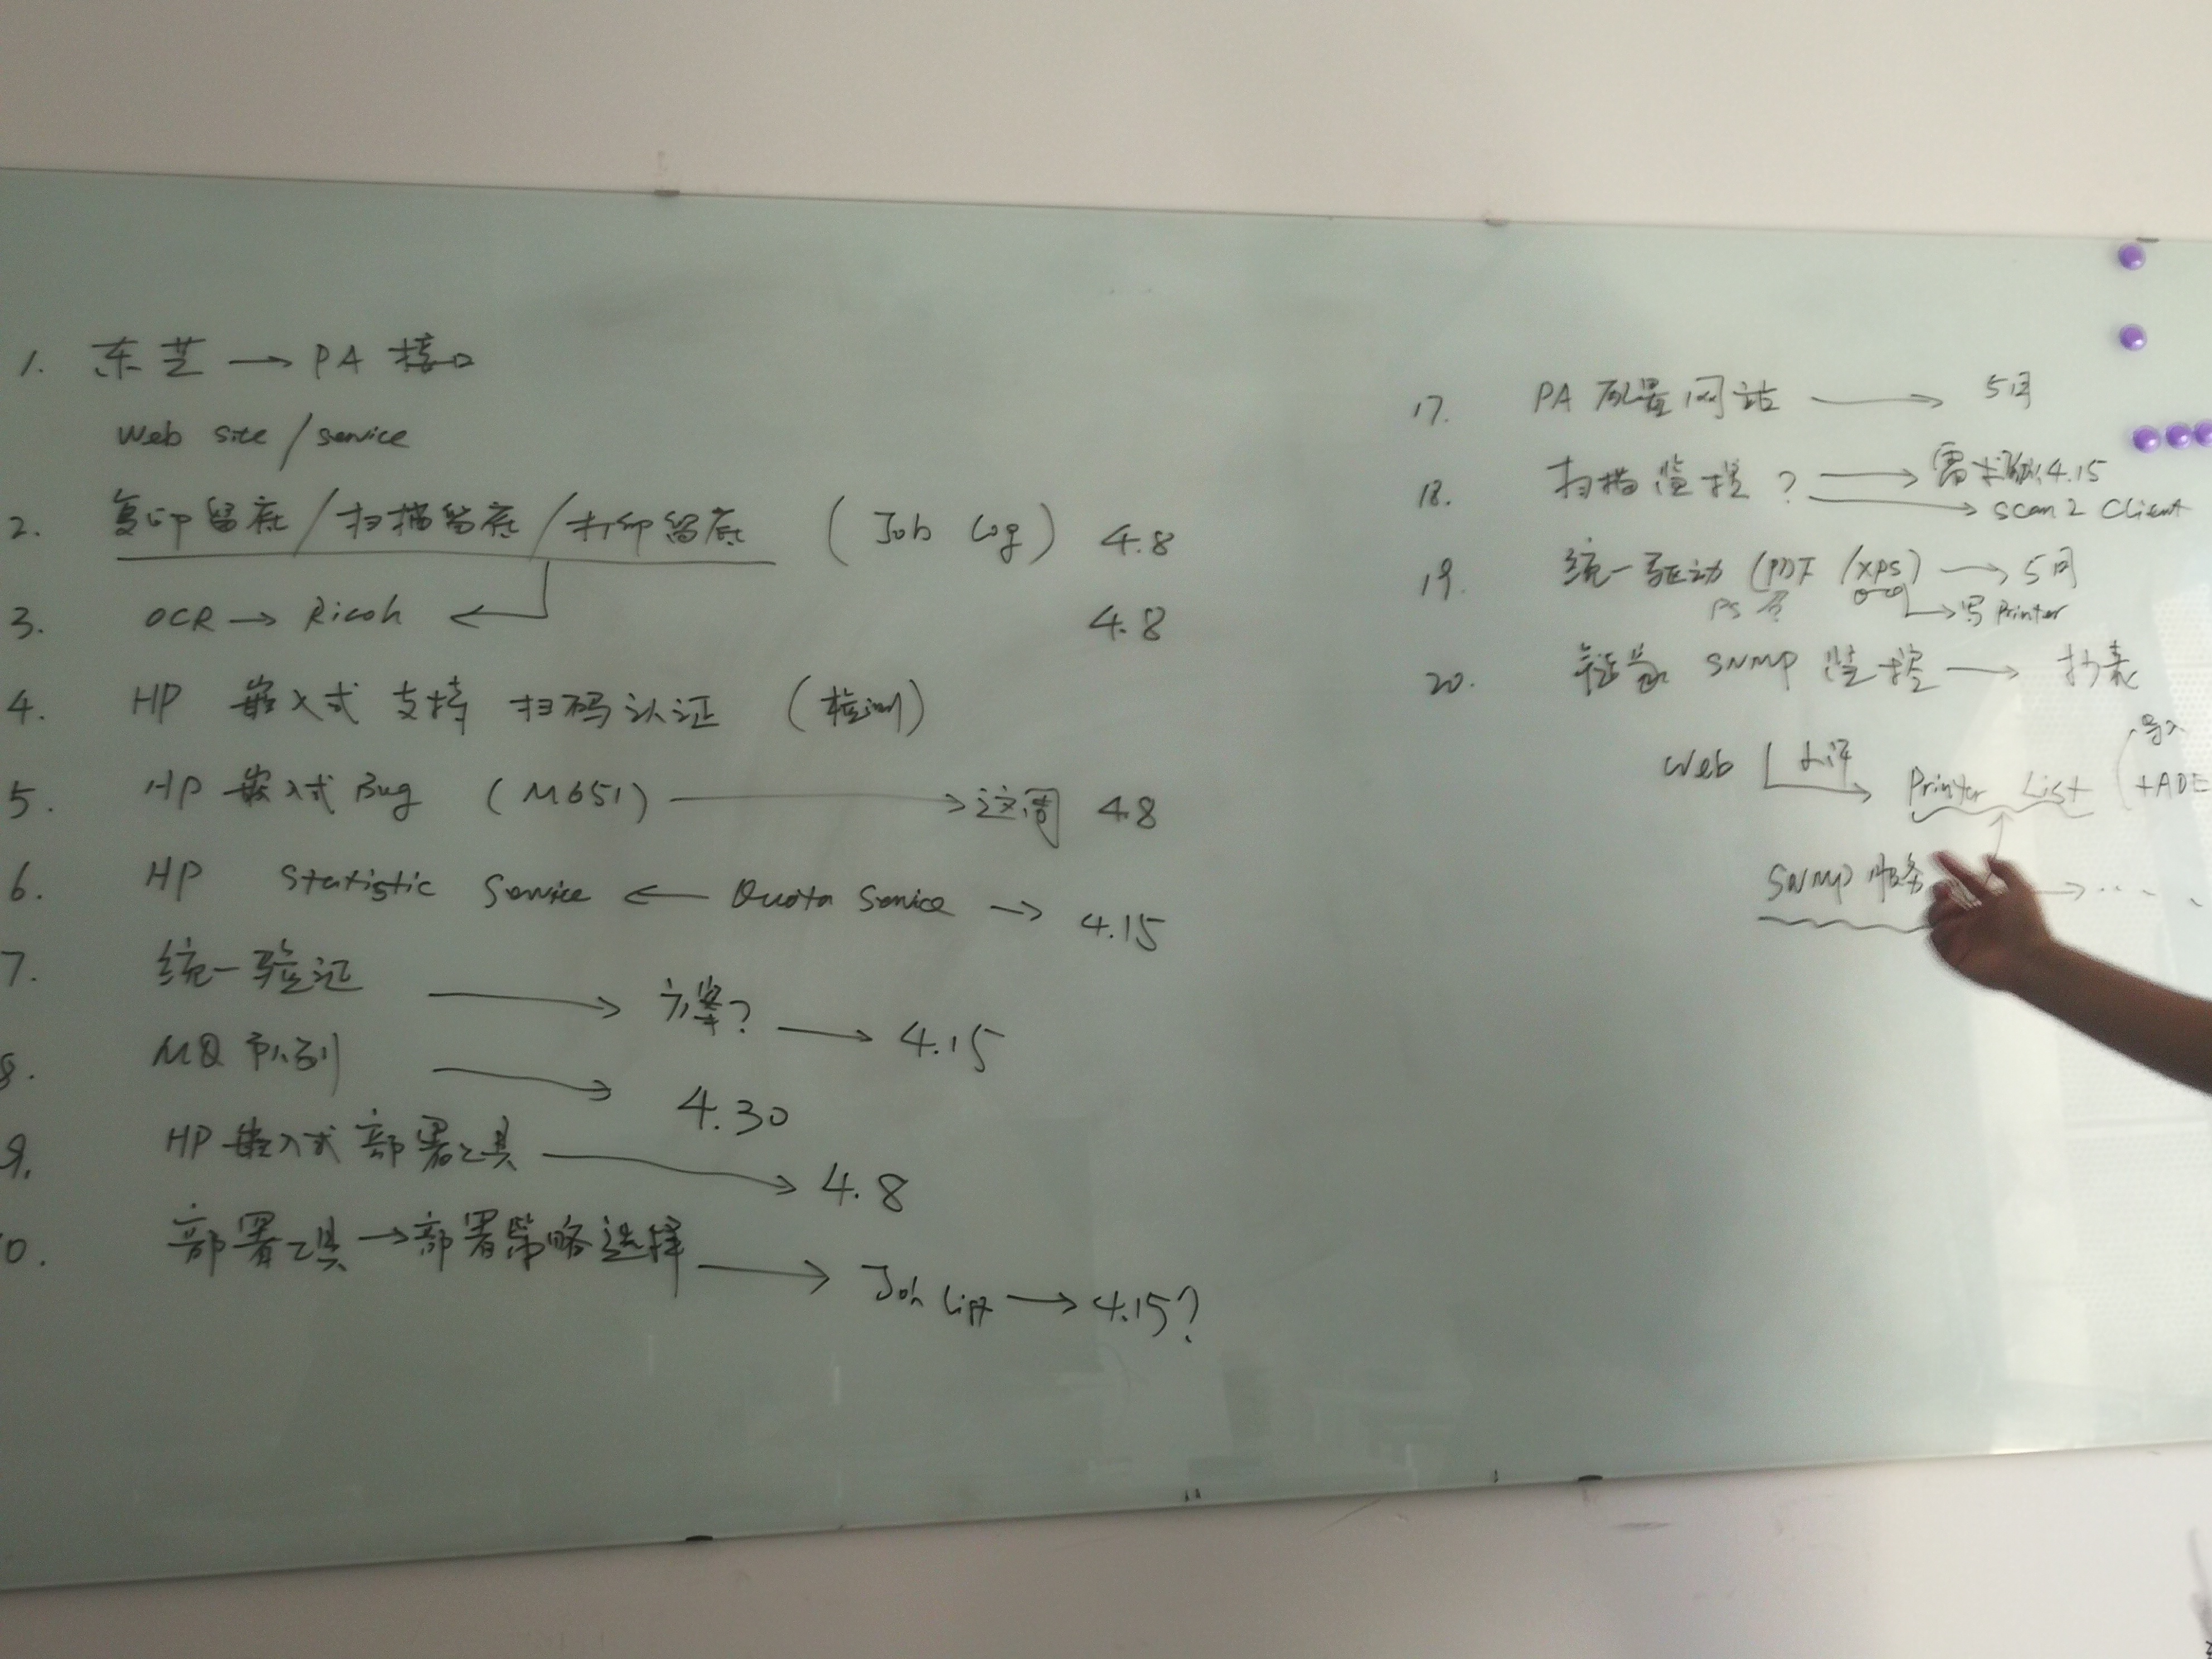 1. 东芝 → PA 接口
Web site / service
2. 复印留底 / 扫描留底 / 打印留底 (Job Log) 4.8
3. OCR → Ricoh ← 4.8
4. HP 嵌入式 支持 扫码认证 (检测)
5. HP 嵌入式 Bug (M651) → 这周 4.8
6. HP Statistic Service ← Quota Service → 4.15
7. 统一验证 → 方案? → 4.15
8. MQ 队列 → 4.30
9. HP 嵌入式 部署工具 → 4.8
0. 部署工具 → 部署策略选择 → Job List → 4.15?
17. PA 配置网站 → 5月
18. 扫描监控? → 需求 4.15
→ Scan 2 Client
19. 统一驱动 (PDF / XPS) → 5月
PS → 写 Printer
20. SNMP 监控 → 抄表
Web 上评 → Printer List 导入
+ADE
SNMP 服务 → ....